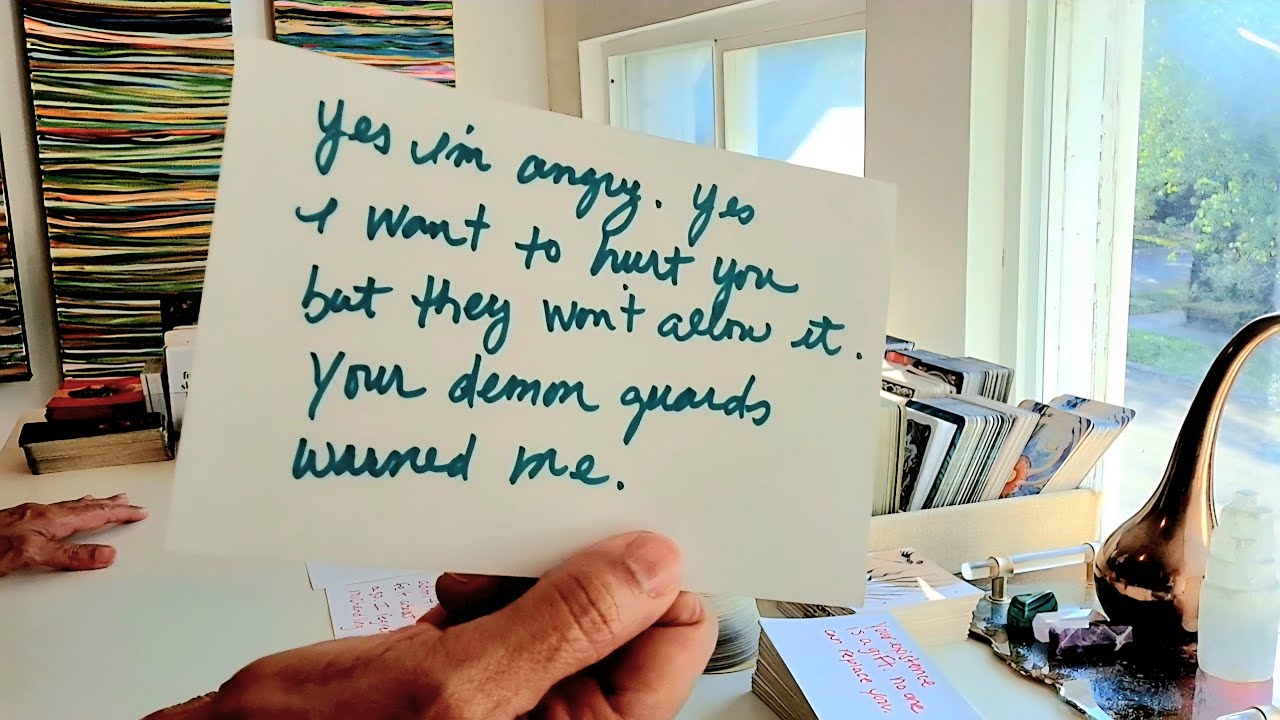 Yes I'm angry. Yes
I want to hurt you
but they won't allow it.
Your demon guards
warned me.
Your existence
is a gift. No one
can replace you.